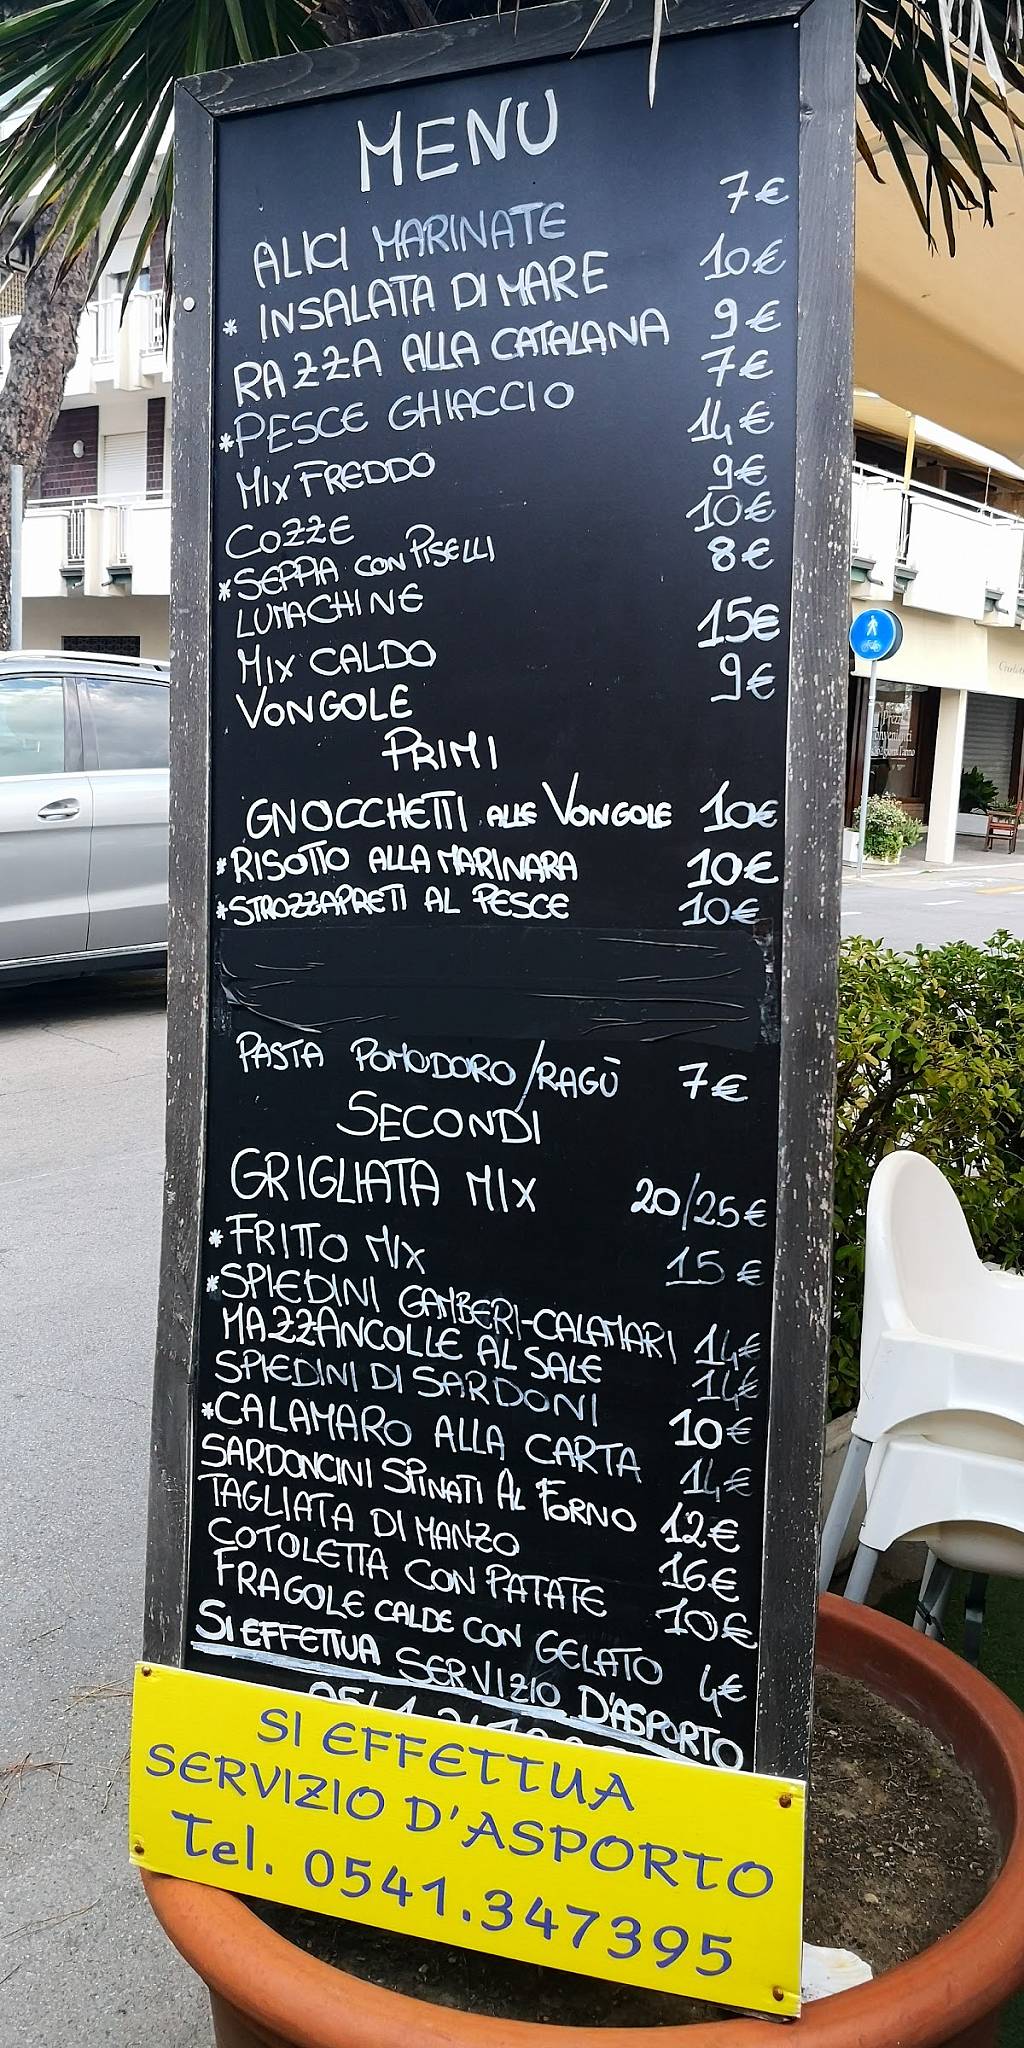 MENU
ALICI MARINATE 7€
* INSALATA DI MARE 10€
RAZZA ALLA CATALANA 9€
*PESCE GHIACCIO 7€
MIX FREDDO 14€
COZZE 9€
*SEPPIA CON PISELLI 10€
LUMACHINE 8€
MIX CALDO 15€
VONGOLE 9€
PRIMI
GNOCCHETTI ALLE VONGOLE 10€
*RISOTTO ALLA MARINARA 10€
*STROZZAPRETI AL PESCE 10€
PASTA POMODORO/RAGÙ 7€
SECONDI
GRIGLIATA MIX 20/25€
*FRITTO MIX 15€
*SPIEDINI GAMBERI-CALAMARI 14€
MAZZANCOLLE AL SALE 14€
SPIEDINI DI SARDONI 10€
*CALAMARO ALLA CARTA 14€
SARDONCINI SPINATI AL FORNO 12€
TAGLIATA DI MANZO 16€
COTOLETTA CON PATATE 10€
FRAGOLE CALDE CON GELATO 4€
SI EFFETTUA SERVIZIO D'ASPORTO
SI EFFETTUA
SERVIZIO D'ASPORTO
Tel. 0541.347395